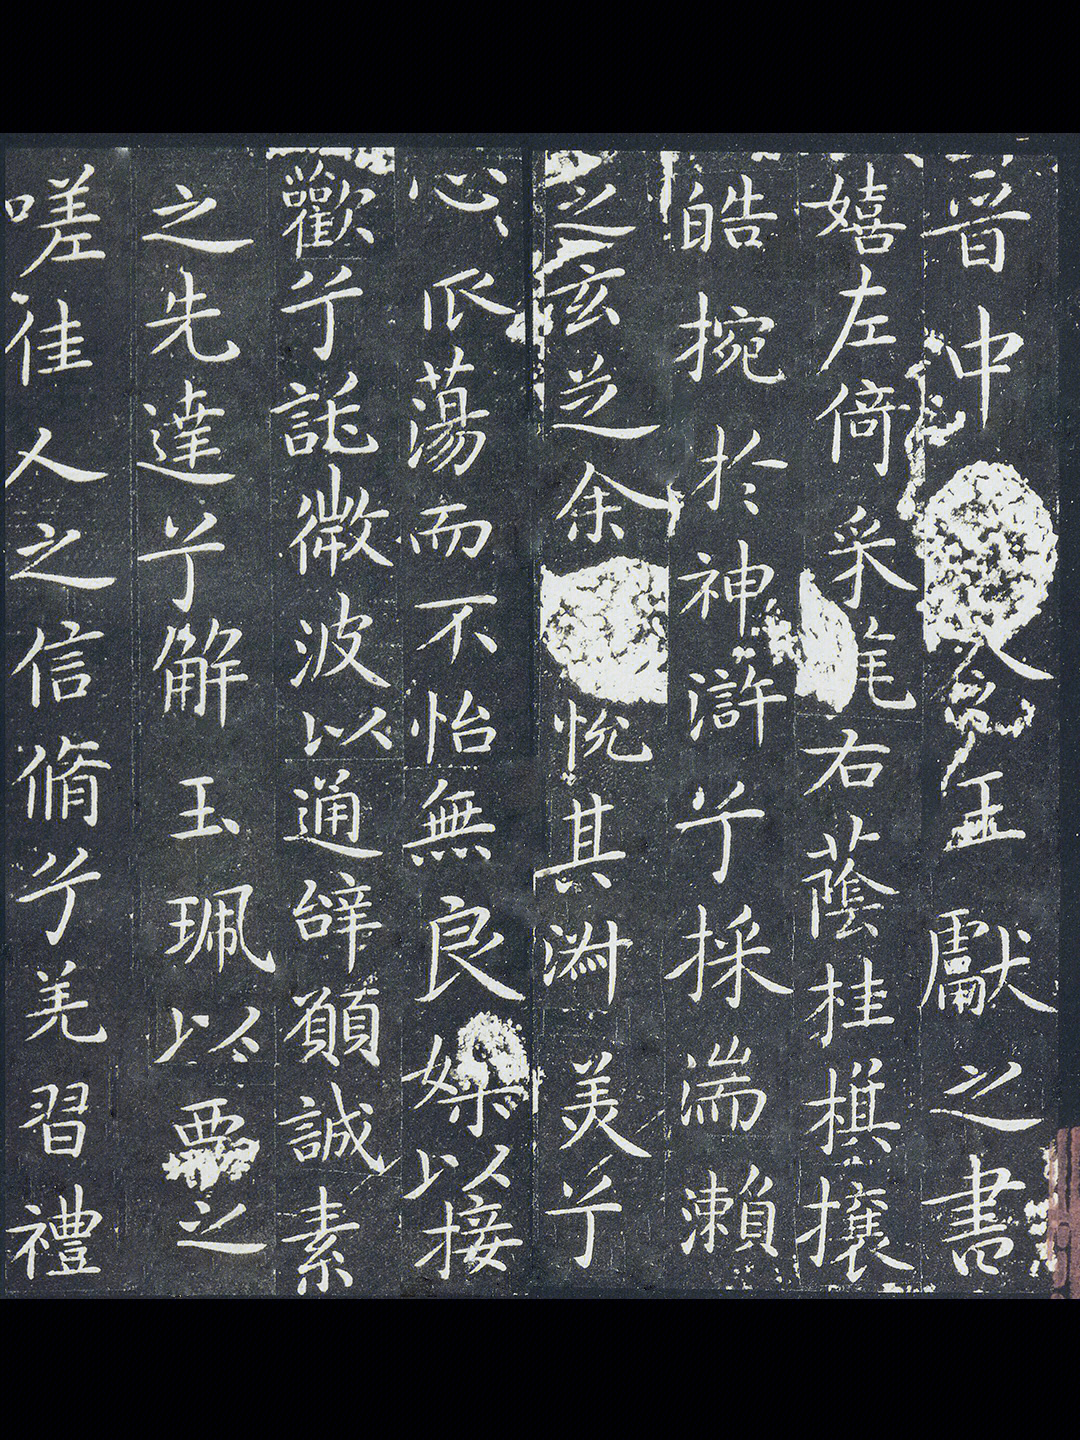 晉中令王獻之書
嬉左倚采旄右蔭桂棋攘
皓捥於神滸兮採湍瀨
之玄芝余悅其淑美兮
心振蕩而不怡無良媒以接
歡兮託微波以通辭願誠素
之先達兮解玉珮以要之
嗟佳人之信脩兮羌習禮